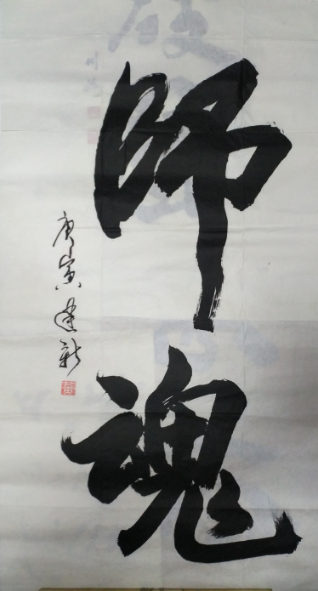 师魂
庚寅建新